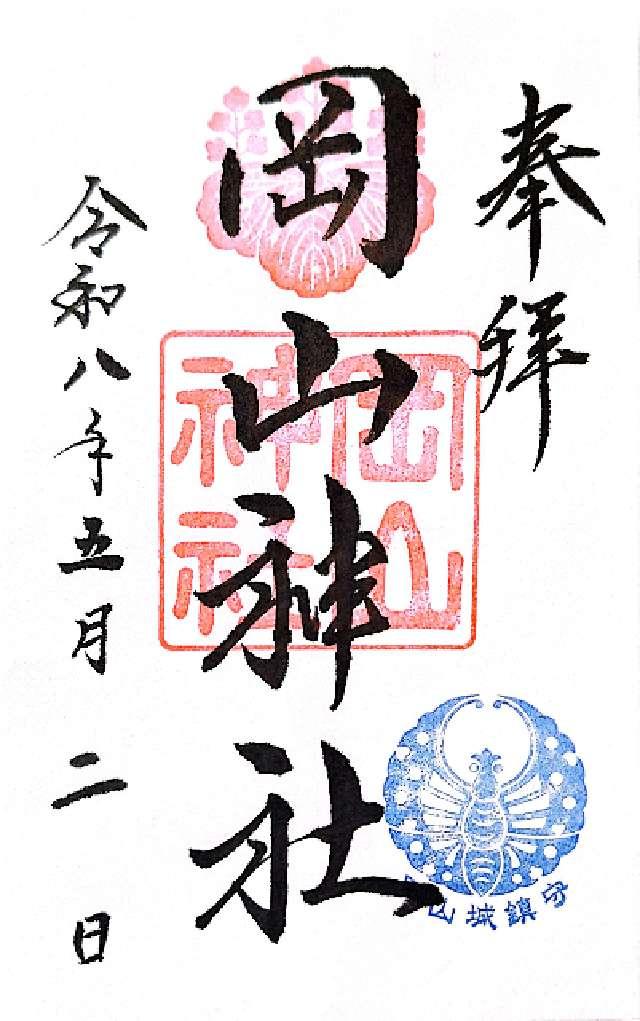 奉拝
岡山神社
岡山
神社
山城鎮守
令和八年五月二日